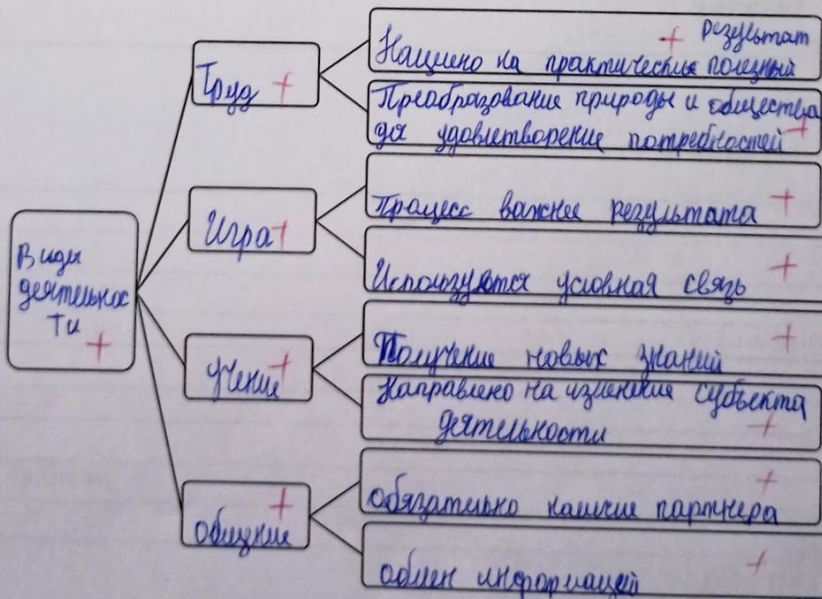 Виды
деятельнос
ти +
Труд +
+ результат
Нацелено на практически полезный
Преобразование природы и общества
для удовлетворение потребностей +
Игра +
Процесс важнее результата +
Используются условная связь +
учение +
Получение новых знаний +
Направлено на изменение субъекта
деятельности +
+
общение
+
обязательно наличие партнера
обмен информацией +